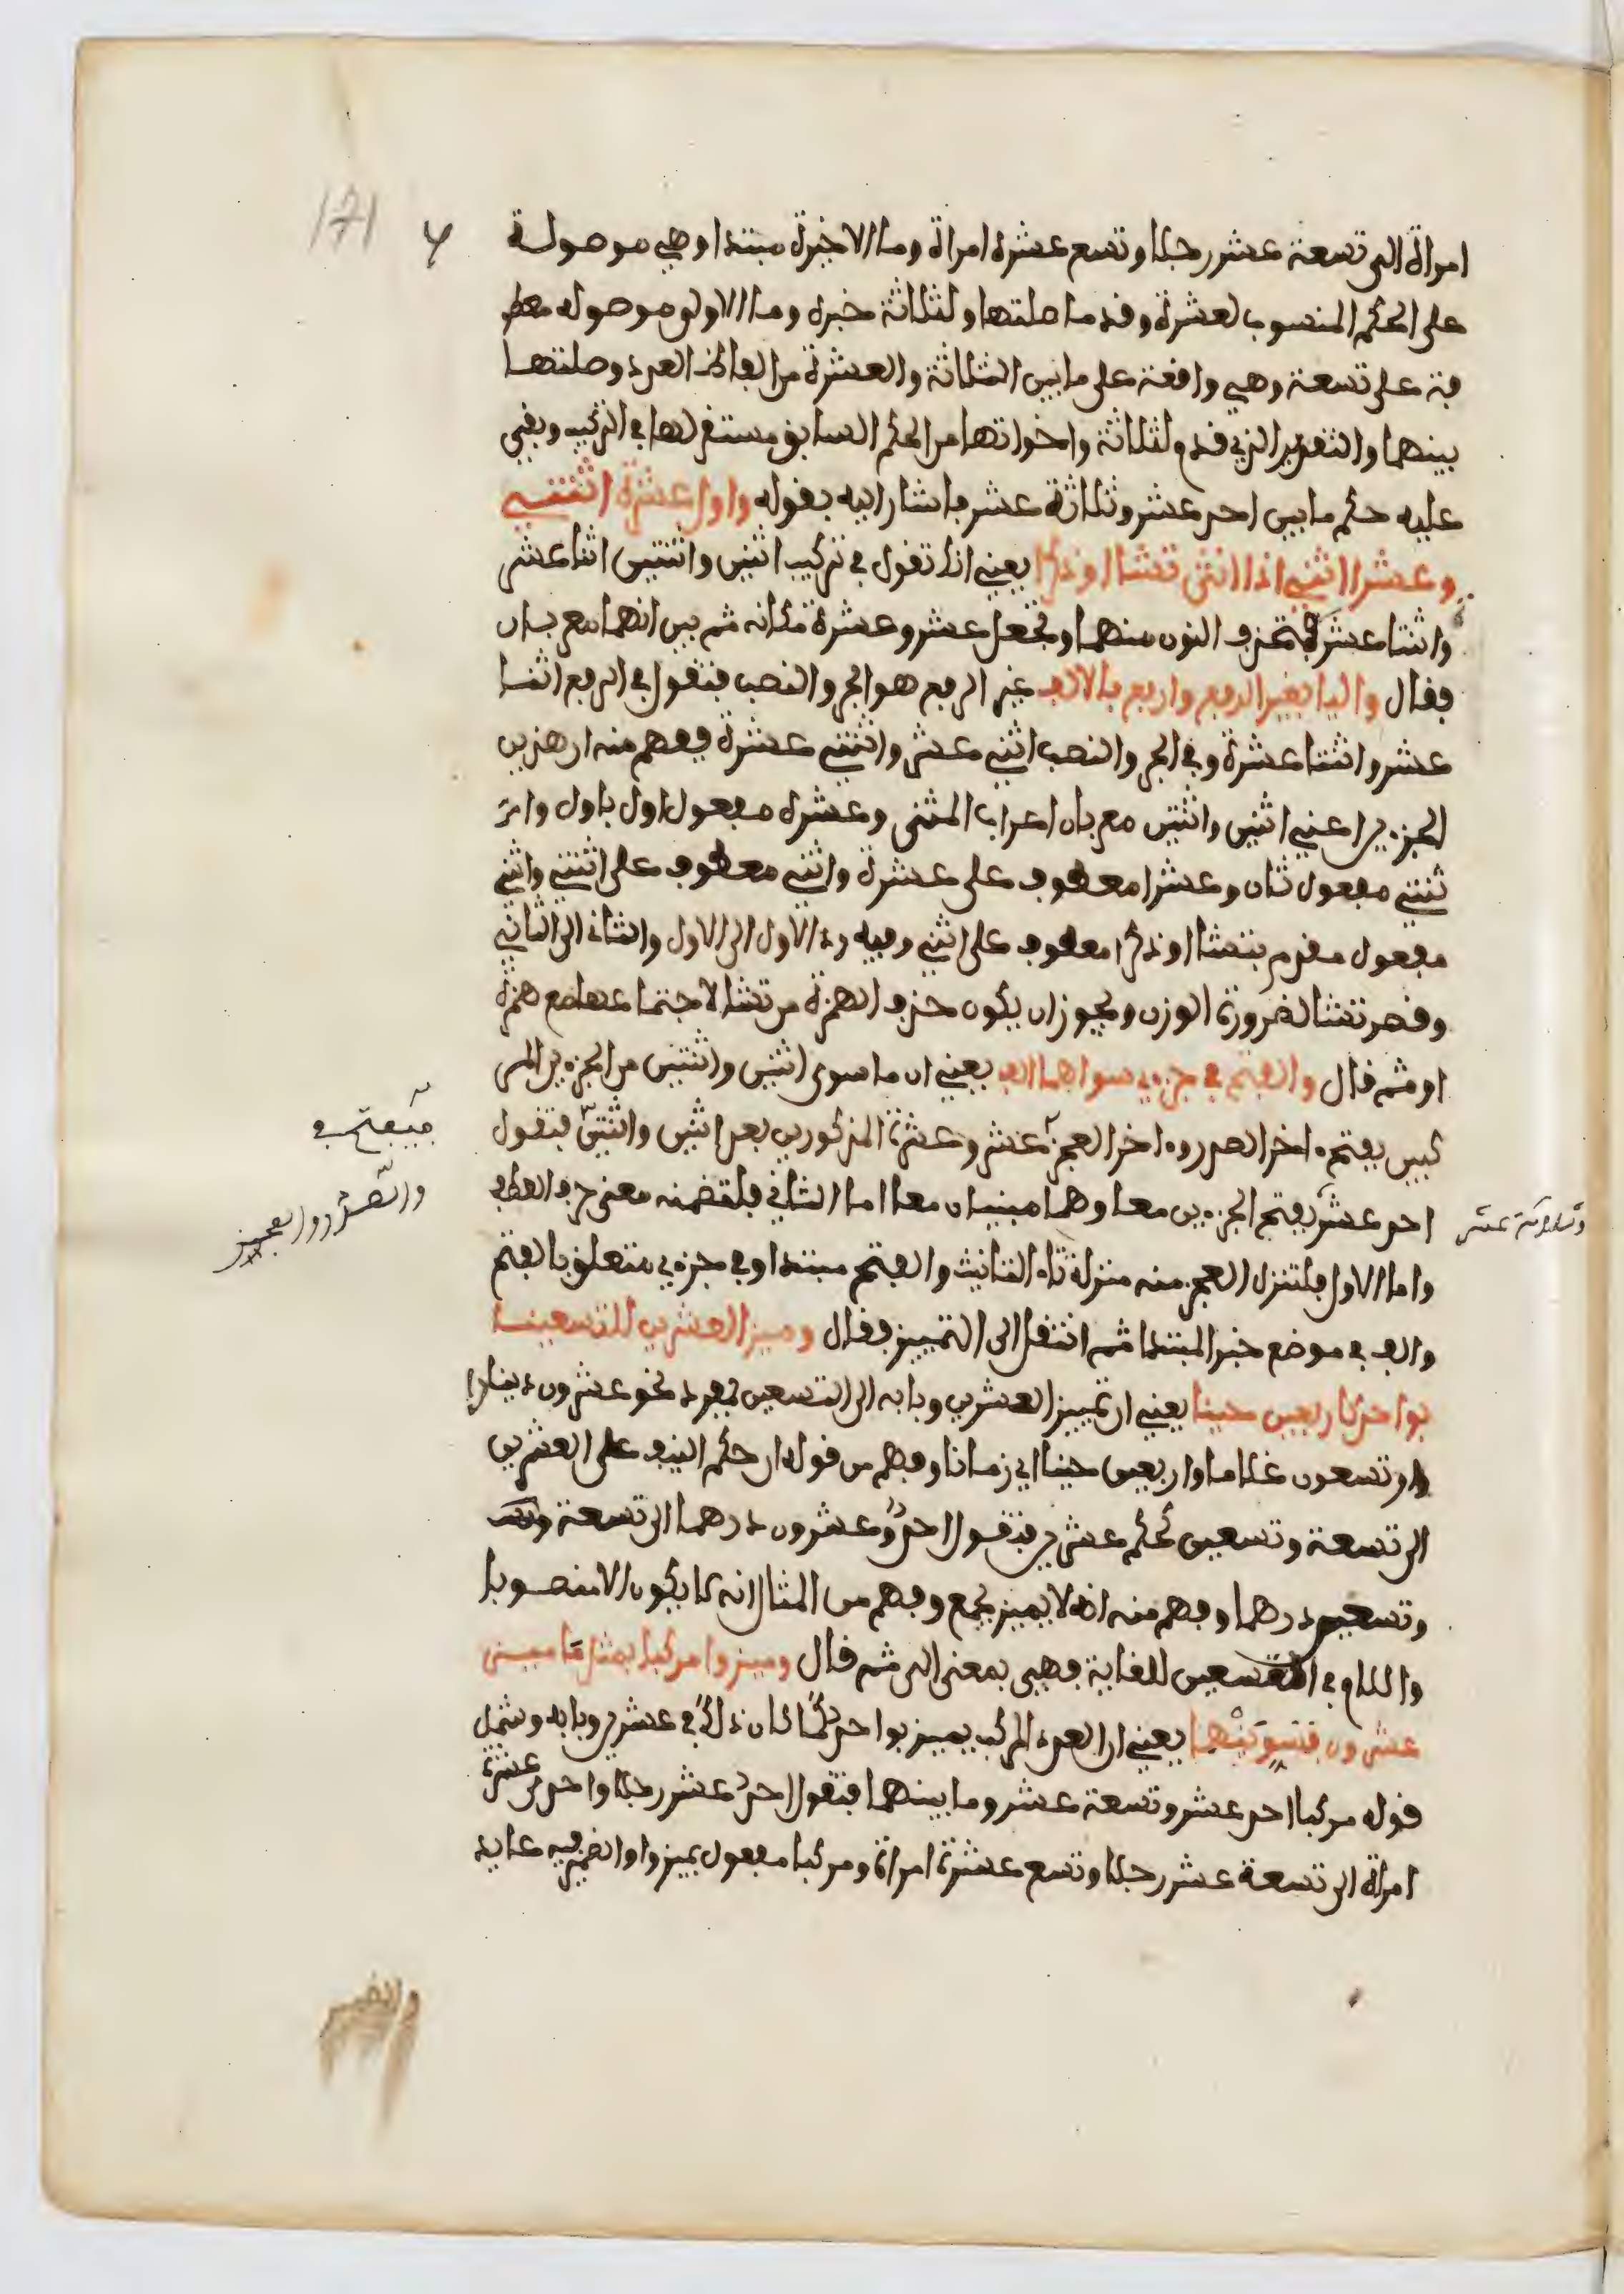 171
امرأة إلى تسعة عشر رجلا وتسع عشرة امراة وما الاخيرة مبتدا وهي موصولة
على الحكم المنسوب لعشرة وقدما صلتها ولثلاثة خبره وما الاولى موصوله معطو
فة على تسعة وهي واقعة على ما بين الثلاثة والعشرة من الفاظ العدد وصلتها
بينهما والتقدير الذي قدم لثلاثة واخواتها من الحكم السابق مستقر لها في التركيب وبقي
عليه حكم ما بين احد عشر وثلاثة عشر فاشار اليه بقوله واول عشرة اثنتي
وعشرا اثني اذا انثى تشا او ذكرا يعني انك تقول في تركيب اثنين واثنتين اثنا عشر
واثنتا عشرة فتحذف النون منهما وتجعل عشر وعشرة مكانه ثم بين انهما معربان
فقال واليا لغير الرفع وارفع بالالف غير الرفع هو الجر والنصب فتقول في الرفع اثنا
عشر واثنتا عشرة وفي الجر والنصب اثني عشر واثنتي عشرة ففهم منه ان هذين
الجزءين اعني اثنين واثنتين معربان اعراب المثنى وعشرة مفعول اول باول واثـ
ثنتي مفعول ثان وعشرا معطوف على عشرة واثني معطوف على اثنتي واثني
مفعول مقدم بتشا او ذكرا معطوف على انثى وفيه رد الاول الى الاول والثاني الى الثاني
وقصر تشا لضرورة الوزن ويجوز ان يكون حذف الهمزة من تشا لاجتماعها مع همزة
او ثم قال والفتح في جزءي سواهما الف يعني ان ما سوى اثنين واثنتين من الجزءين المر
كبين بفتح ءاخر الصدر وءاخر العجز عشر وعشرة المذكورين بعد اثنين واثنتين فتقول
فيفتح في
والصدر والعجز
احد عشر بفتح الجزءين معا وهما مبنيان معا اما الثاني فلتضمنه معنى حرف العطف
وثلاثة عشر
واما الاول فلتنزل العجز منه منزلة تاء التانيث والفتح مبتدا وفي جزءي متعلق بالفتح
والف في موضع خبر المبتدا ثم انتقل الى التمييز فقال وميز العشرين للتسعينا
بواحد كاربعين حينا يعني ان تمييز العشرين وبابه الى التسعين بمفرد نحو عشرون دينارا
وتسعون غلاما واربعين حينا اي زمانا وفهم من قوله ان حكم النيف على العشرين
الى تسعة وتسعين كحكم عشرين فتقول احد وعشرون درهما الى تسعة
وتسعين درهما وفهم منه انه لا يميز بجمع وفهم من المثال انه لا يكون الا منصوبا
واللام في التسعين للغاية فهي بمعنى الى ثم قال وميزوا مركبا بمثل ما ميز
عشرون فسوينهما يعني ان العدد المركب يميز بواحد كما كان ذلك في عشرين وبابه وشمل
قوله مركبا احد عشر وتسعة عشر وما بينهما فتقول احد عشر رجلا واحدى عشرة
امراة الى تسعة عشر رجلا وتسع عشرة امراة ومركبا مفعول بميزوا والضمير فيه عايد
والضمير